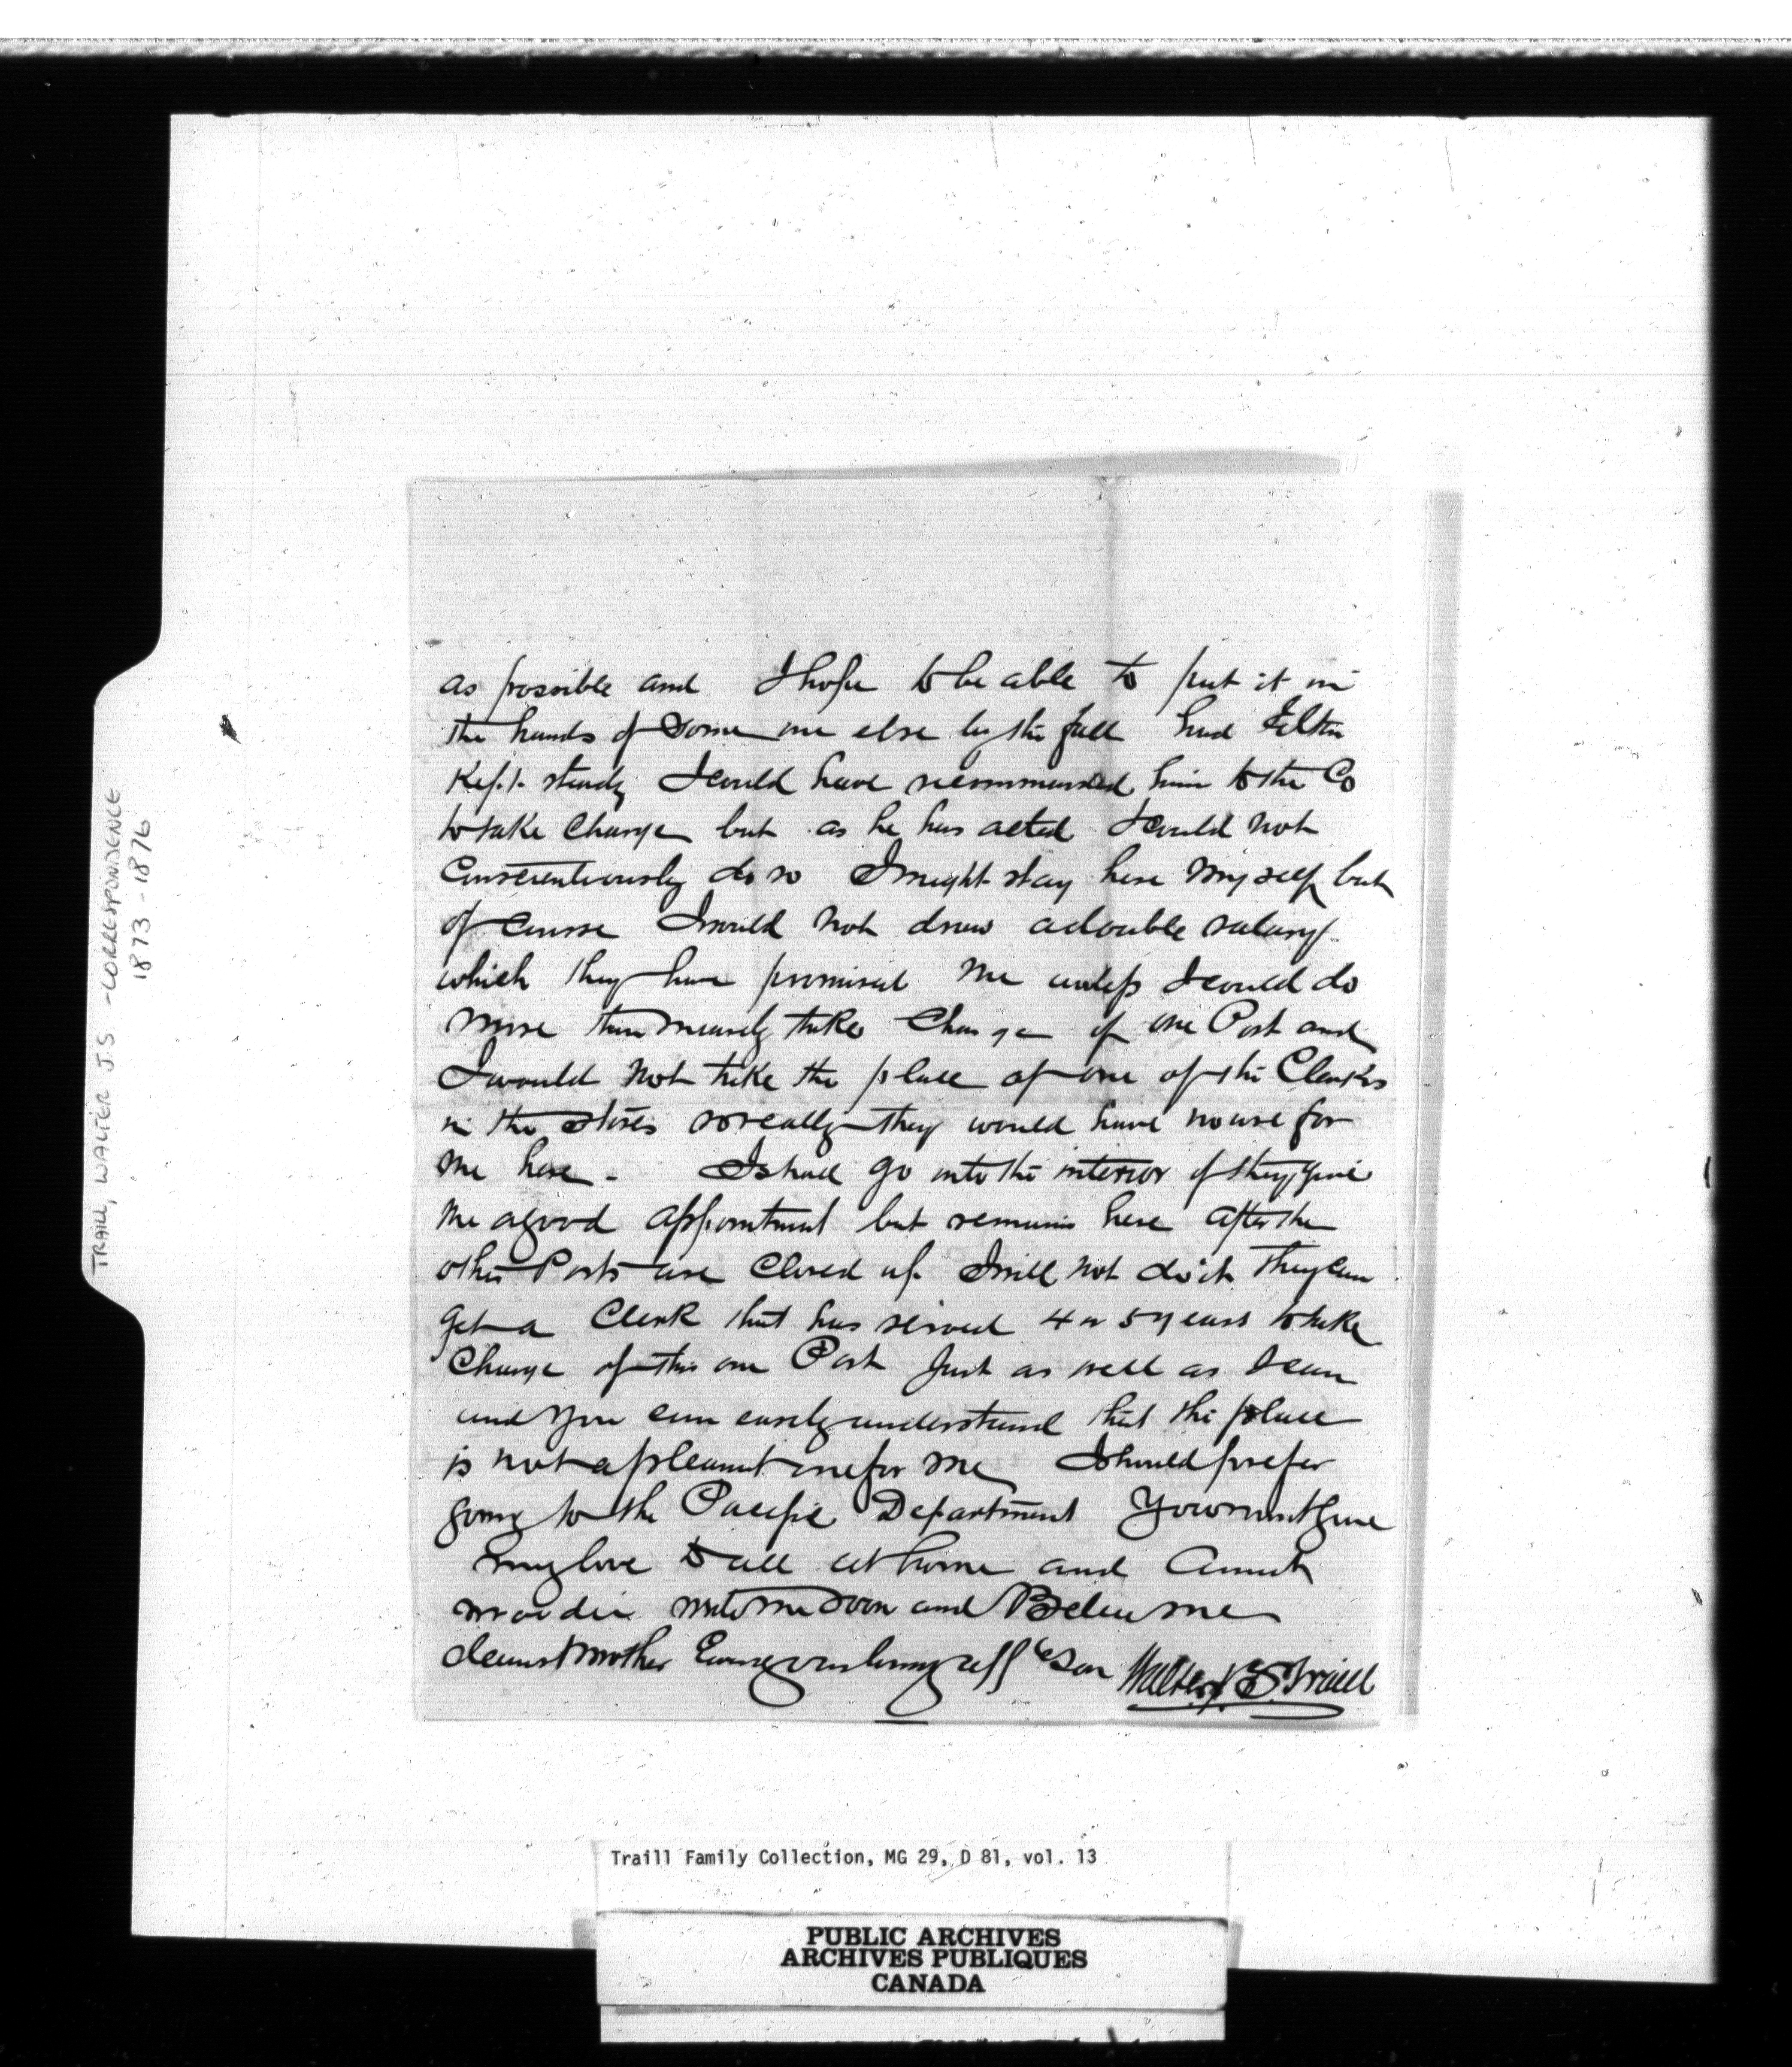 as possible and I hope to be able to put it in
the hands of some one else by the fall had Felton
Kept steady I could have recommended him to the Co
to take charge but as he has acted I could not
Conscientiously do so I might stay here myself but
of course I would not draw a double salary
which they have promised me unless I could do
more than merely take charge of one Post and
I would not take the place of one of the Clerks
in the stores so really they would have no use for
me here - I shall go into the interior if they give
me a good appointment but remain here after the
other Posts are closed up I will not do it they can
get a Clerk that has served 4 or 5 years to take
charge of this one Post just as well as I can
and you can easily understand that the place
is not a pleasant one for me I should prefer
going to the Pacific Department You must give
my love to all at home and Aunt
Moodie write me soon and Believe me
dearest Mother Ever your loving affte Son Walter J. S. Traill
TRAILL, WALTER J.S - CORRESPONDENCE
1873 - 1876
Traill Family Collection, MG 29, D 81, vol. 13
PUBLIC ARCHIVES
ARCHIVES PUBLIQUES
CANADA